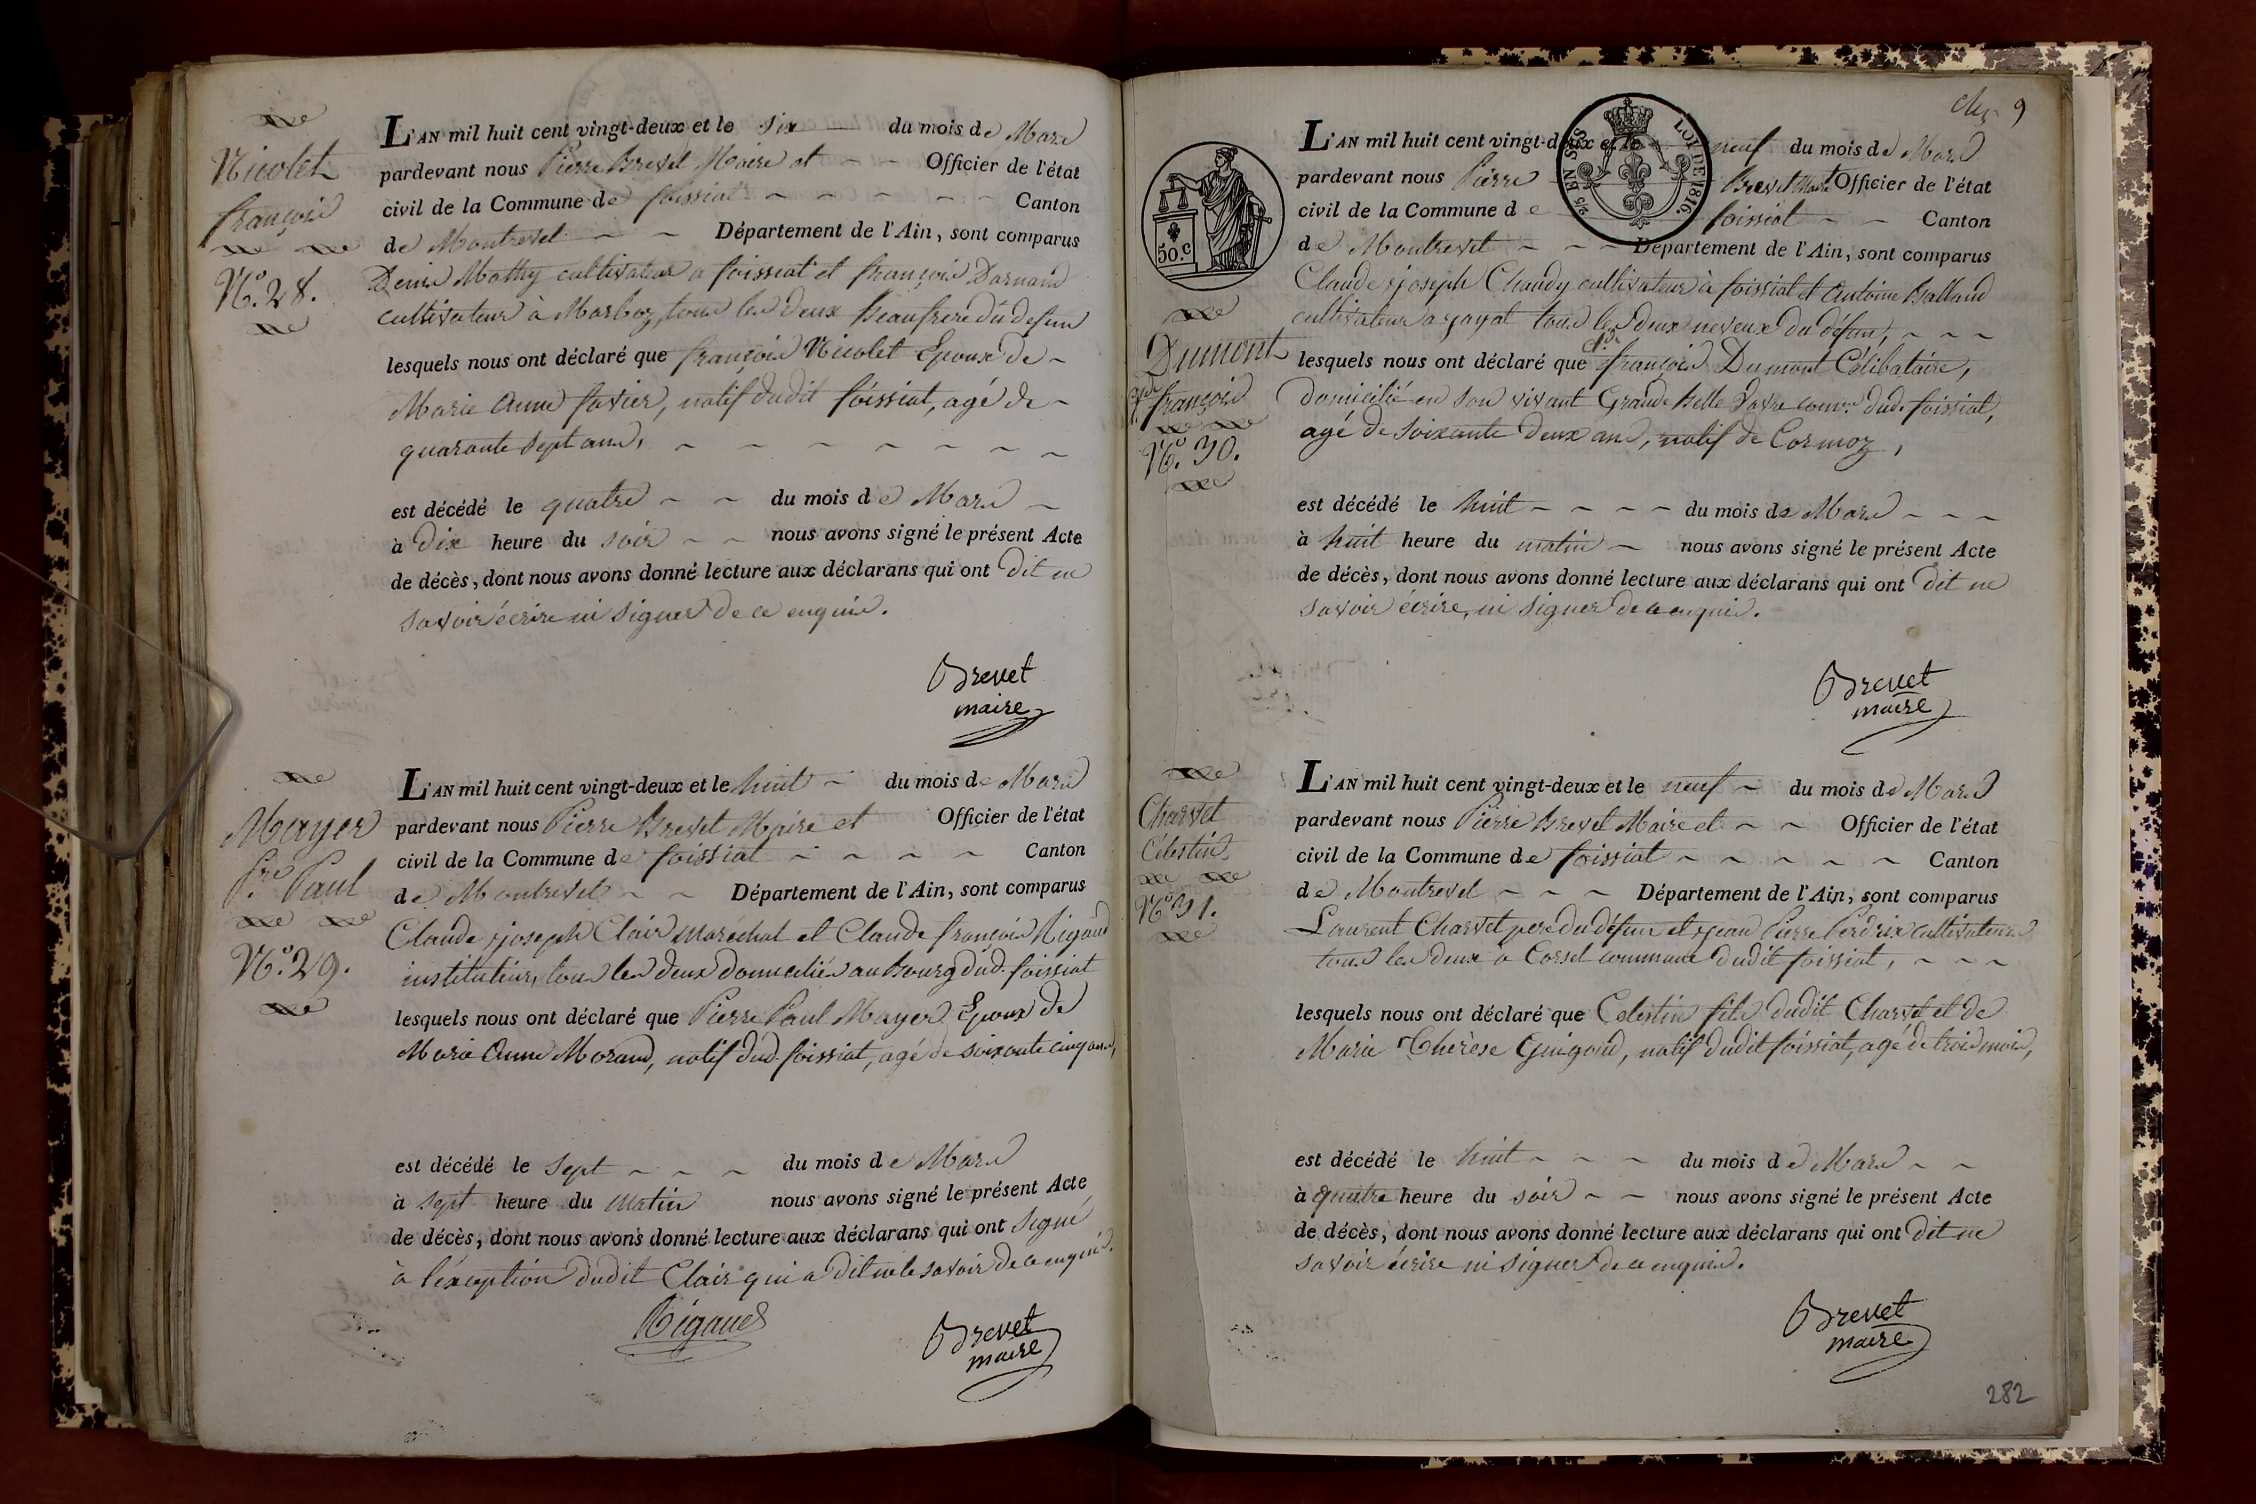 Nicolet
françois
N.º 28.
L'AN mil huit cent vingt-deux et le six du mois de Mars
pardevant nous Pierre Brevet Maire et Officier de l'état
civil de la Commune de foissiat Canton
de Montrevel Département de l'Ain, sont comparus
Denis Mathy cultivateur a foissiat et françois Darnand
cultivateur à Marboz, tous les deux Beaufrere du defunt
lesquels nous ont déclaré que françois Nicolet Epoux de
Marie Anne favier, natif dudit foissiat, agé de
quarante sept ans,
est décédé le quatre du mois de Mars
à dix heure du soir nous avons signé le présent Acte
de décès, dont nous avons donné lecture aux déclarans qui ont dit ne
savoir écrire ni signer de ce enquis.
Brevet
maire
Mayer
P.re Paul
N.º 29.
L'AN mil huit cent vingt-deux et le huit du mois de Mars
pardevant nous Pierre Brevet Maire et Officier de l'état
civil de la Commune de foissiat Canton
de Montrevel Département de l'Ain, sont comparus
Claude joseph Clair maréchal et Claude françois Rigaud
instituteur, tous les deux domiciliés au Bourg dud. foissiat
lesquels nous ont déclaré que Pierre Paul Mayer Epoux de
Marie Anne Morand, natif dud. foissiat, agé de soixante cinq ans,
est décédé le sept du mois de Mars
à sept heure du matin nous avons signé le présent Acte
de décès, dont nous avons donné lecture aux déclarans qui ont signé
à l'éxception dudit Clair qui a dit ne le savoir de ce enquis.
Rigaud
Brevet
maire
9
2/5 EN SUS
LOI DE 1816.
50.c
Dumont
françois
N.º 30.
L'AN mil huit cent vingt-deux et le neuf du mois de Mars
pardevant nous Pierre Brevet Maire Officier de l'état
civil de la Commune de foissiat Canton
de Montrevel Département de l'Ain, sont comparus
Claude joseph Chaudy cultivateur à foissiat et Antoine Balland
cultivateur a jayat tous les deux neveux du défunt,
lesquels nous ont déclaré que françois Dumont Célibataire,
Domicilié en son vivant Grande Belle Davre com.ne dud. foissiat,
agé de soixante deux ans, natif de Cormoz,
est décédé le huit du mois de Mars
à huit heure du matin nous avons signé le présent Acte
de décès, dont nous avons donné lecture aux déclarans qui ont dit ne
savoir écrire, ni signer de ce enquis.
Brevet
maire
Charvet
Célestin
N.º 31.
L'AN mil huit cent vingt-deux et le neuf du mois de Mars
pardevant nous Pierre Brevet Maire et Officier de l'état
civil de la Commune de foissiat Canton
de Montrevel Département de l'Ain, sont comparus
Laurent Charvet pere du défunt et jean Pierre Perdrix cultivateurs
tous les deux a Corset commune dudit foissiat,
lesquels nous ont déclaré que Celestin fils dudit Charvet et de
Marie Thérèse Guigond, natif dudit foissiat, agé de trois mois,
est décédé le huit du mois de Mars
à quatre heure du soir nous avons signé le présent Acte
de décès, dont nous avons donné lecture aux déclarans qui ont dit ne
savoir écrire ni signer de ce enquis.
Brevet
maire
282